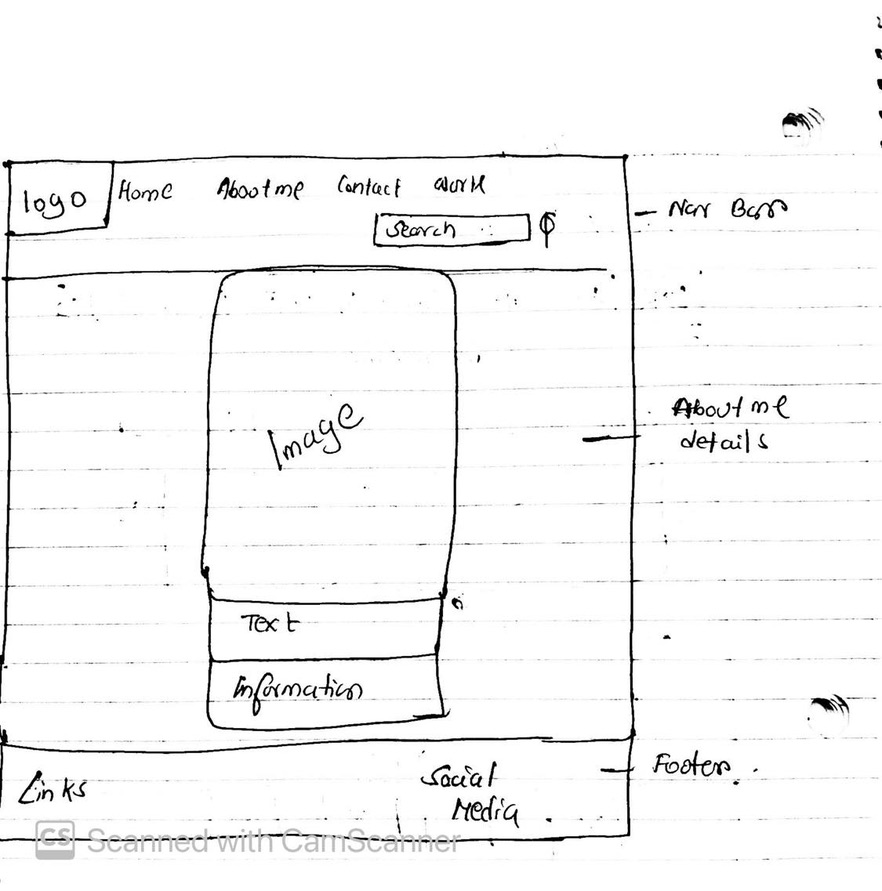 logo
Home About me Contact work
Search
Nav Bar
Image
About me
details
Text
Information
Links
Social
Media
Footer
CS Scanned with CamScanner